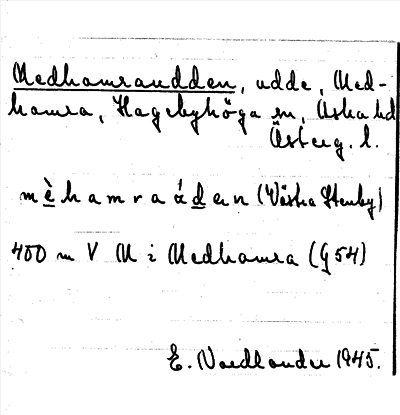 Medhamraudden, udde, Med-
hamra, Hagebyhöga sn, Aska hd
Österg. l.
mè̲hamraúd̲en (Västra Stenby)
400 m V M i Medhamra (G54)
E. Nordlander 1945.